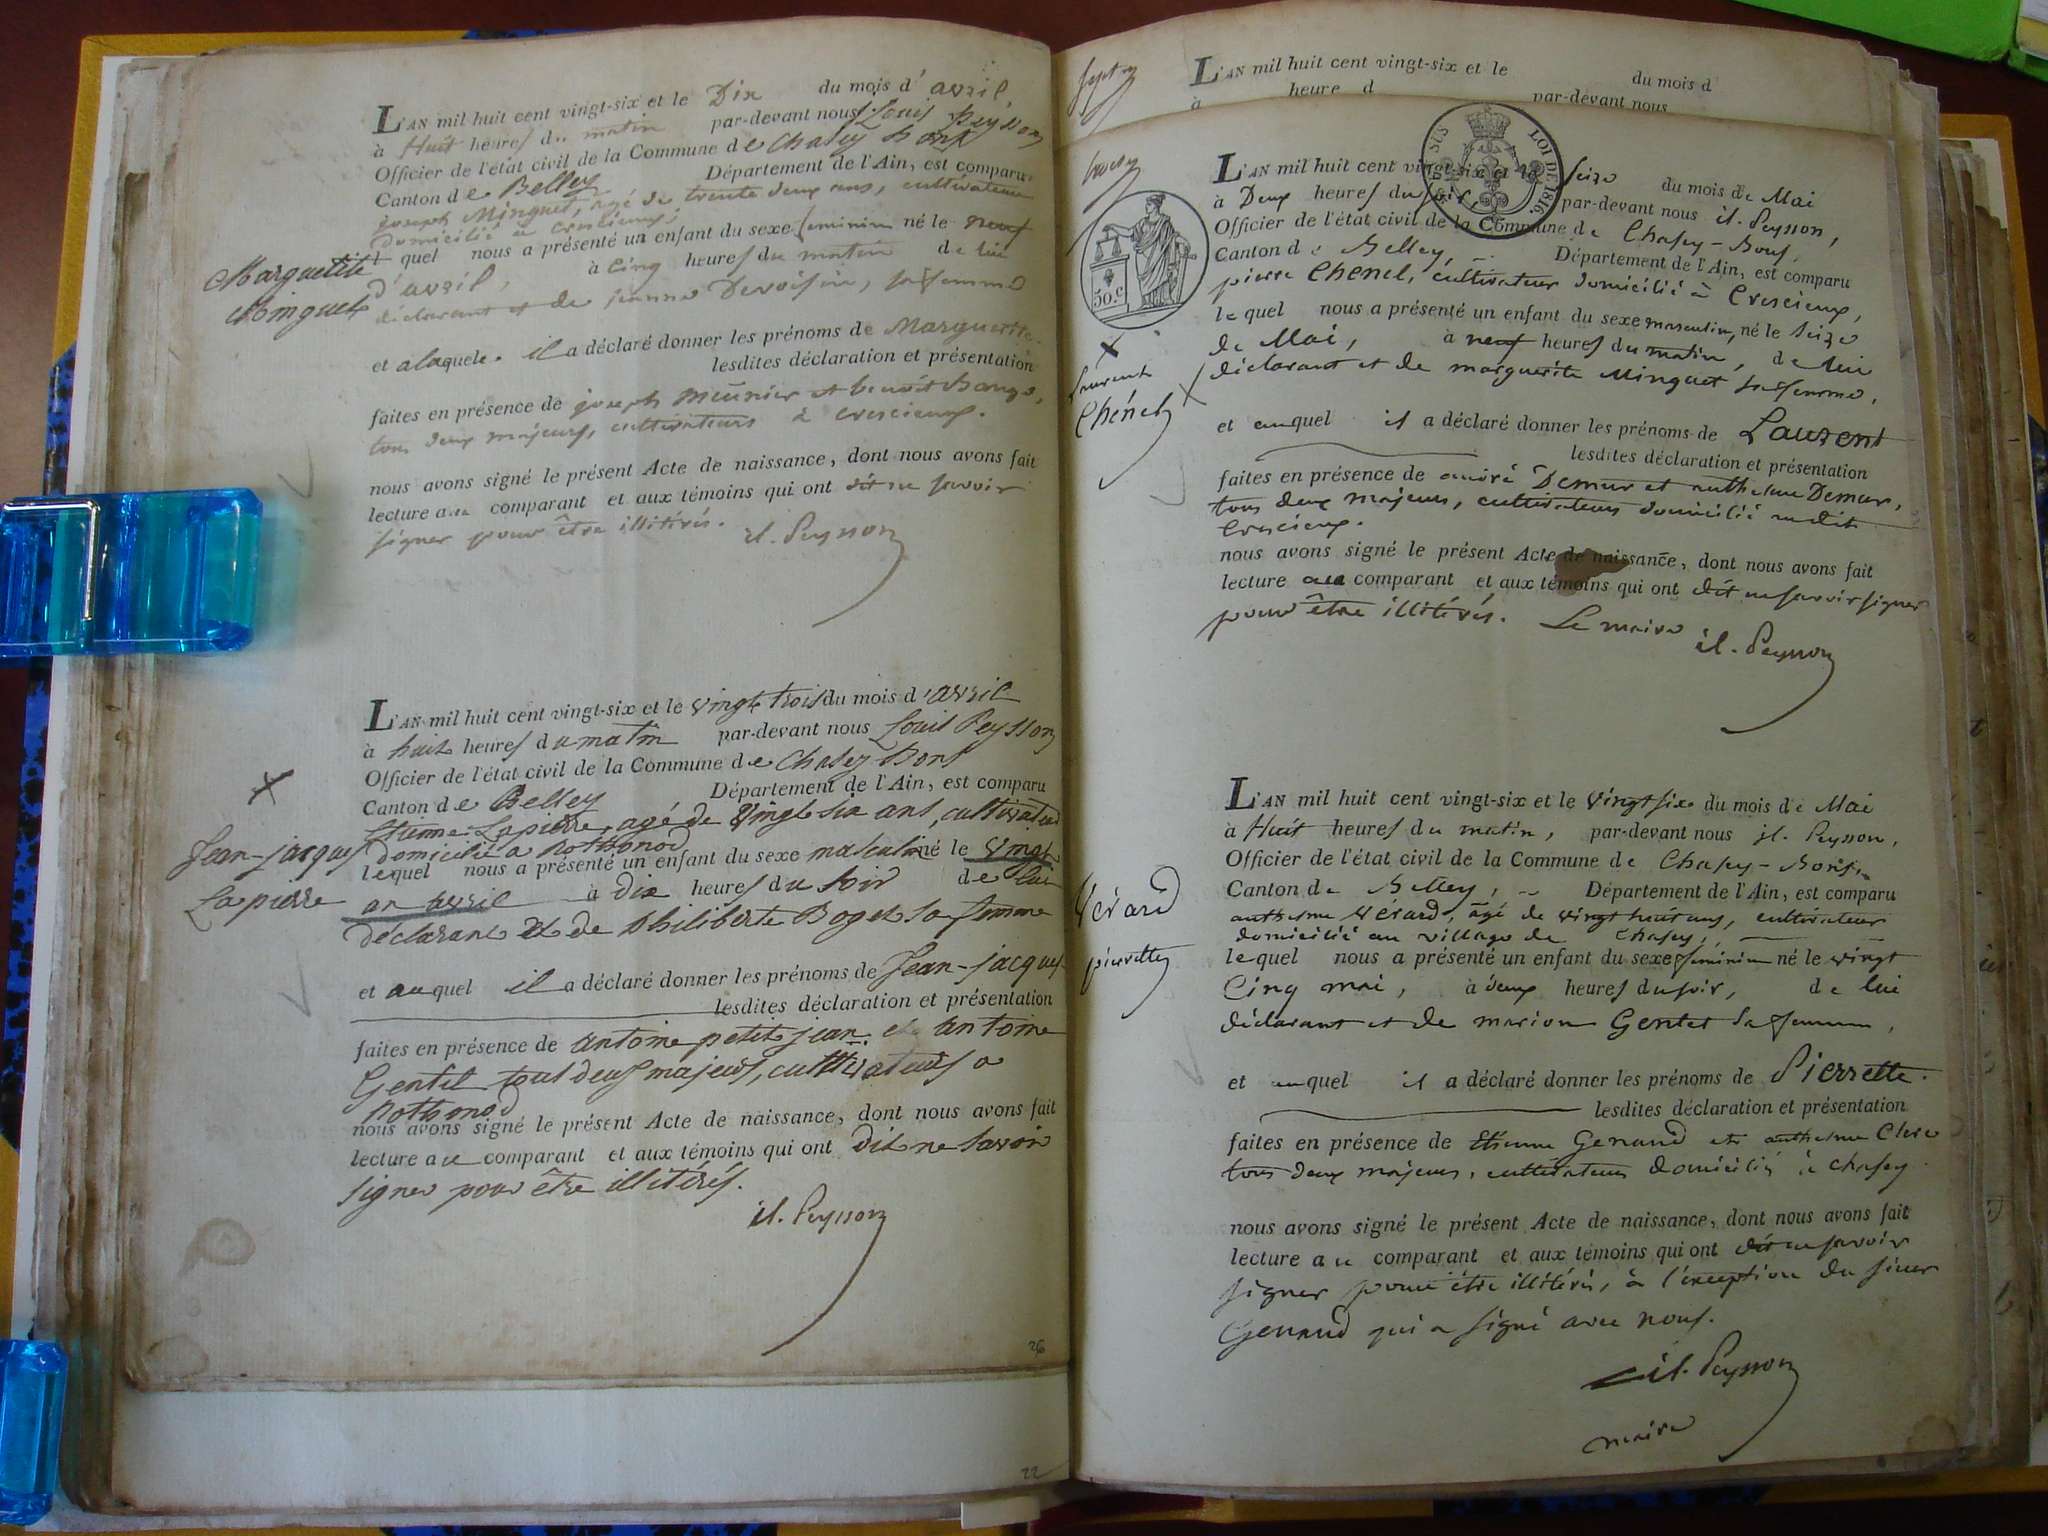 L'AN mil huit cent vingt-six et le Dix du mois d'avril,
à Huit heures du matin par-devant nous Louis Peysson
Officier de l'état civil de la Commune de Chasey Bons
Canton de Belley Département de l'Ain, est comparu
joseph Minguet, agé de trente deux ans, cultivateur
domicilié à crescieux,
lequel nous a présenté un enfant du sexe feminin né le neuf
d'avril, à Cinq heures du matin de lui
déclarant et de jeanne Devoisin, sa femme
et a laquele il a déclaré donner les prénoms de Marguerite
lesdites déclaration et présentation
faites en présence de joseph meunier et benoit
tous deux majeurs, cultivateurs à crescieux.
nous avons signé le présent Acte de naissance, dont nous avons fait
lecture au comparant et aux témoins qui ont dit ne savoir
signer pour être illitérés. il. Peysson
Marguerite
Minguet
L'AN mil huit cent vingt-six et le vingt trois du mois d'avril
à huit heures du matin par-devant nous Louis Peysson
Officier de l'état civil de la Commune de Chasey Bons
Canton de Belley Département de l'Ain, est comparu
Etienne Lapierre, agé de vingt six ans, cultivateur
domicilié a Rothonod
lequel nous a présenté un enfant du sexe masculin né le vingt
un avril à dix heures du soir de lui
déclarant et de Philiberte Boget sa femme
et auquel il a déclaré donner les prénoms de Jean-jacques
lesdites déclaration et présentation
faites en présence de antoine petit jean et antoine
Gentil tout deux majeurs, cultivateurs a
Rothonod
nous avons signé le présent Acte de naissance, dont nous avons fait
lecture au comparant et aux témoins qui ont dit ne savoir
signer pour être illitérés.
il. Peysson
Jean-jacques
Lapierre
26
22
L'AN mil huit cent vingt-six et le du mois d
à heure d par-devant nous
LOI DE 1816
30.C
L'AN mil huit cent vingt-six et le Seize du mois de Mai
à Deux heures du soir, par-devant nous il. Peysson,
Officier de l'état civil de la Commune de Chasey-Bons,
Canton de Belley, Département de l'Ain, est comparu
pierre Chenel, cultivateur domicilié à Crescieux,
lequel nous a présenté un enfant du sexe masculin, né le seize
de Mai, à neuf heures du matin, de lui
déclarant et de marguerite Minguet sa femme,
et auquel il a déclaré donner les prénoms de Laurent
lesdites déclaration et présentation
faites en présence de andré Demur et anthelme Demur,
tous deux majeurs, cultivateurs domicilié audit
Crescieux.
nous avons signé le présent Acte de naissance, dont nous avons fait
lecture au comparant et aux témoins qui ont dit ne savoir signer
pour être illitérés. Le maire
il. Peysson
Laurent
Chénel
L'AN mil huit cent vingt-six et le vingt six du mois de Mai
à Huit heures du matin, par-devant nous il. Peysson,
Officier de l'état civil de la Commune de Chasey-Bons,
Canton de Belley, Département de l'Ain, est comparu
anthelme Vérard, âgé de vingt huit ans, cultivateur
domicilié au village de Chasey,
lequel nous a présenté un enfant du sexe feminin né le vingt
Cinq mai, à deux heures du soir, de lui
déclarant et de marion Gentet sa femme,
et auquel il a déclaré donner les prénoms de Pierrette.
lesdites déclaration et présentation
faites en présence de Etienne Genaud et anthelme Clerc
tous deux majeurs, cultivateurs domiciliés à chasey.
nous avons signé le présent Acte de naissance, dont nous avons fait
lecture au comparant et aux témoins qui ont dit ne savoir
signer pour être illitérés, à l'exception du sieur
Genaud qui a signé avec nous.
il. Peysson
maire
Vérard
pierrette